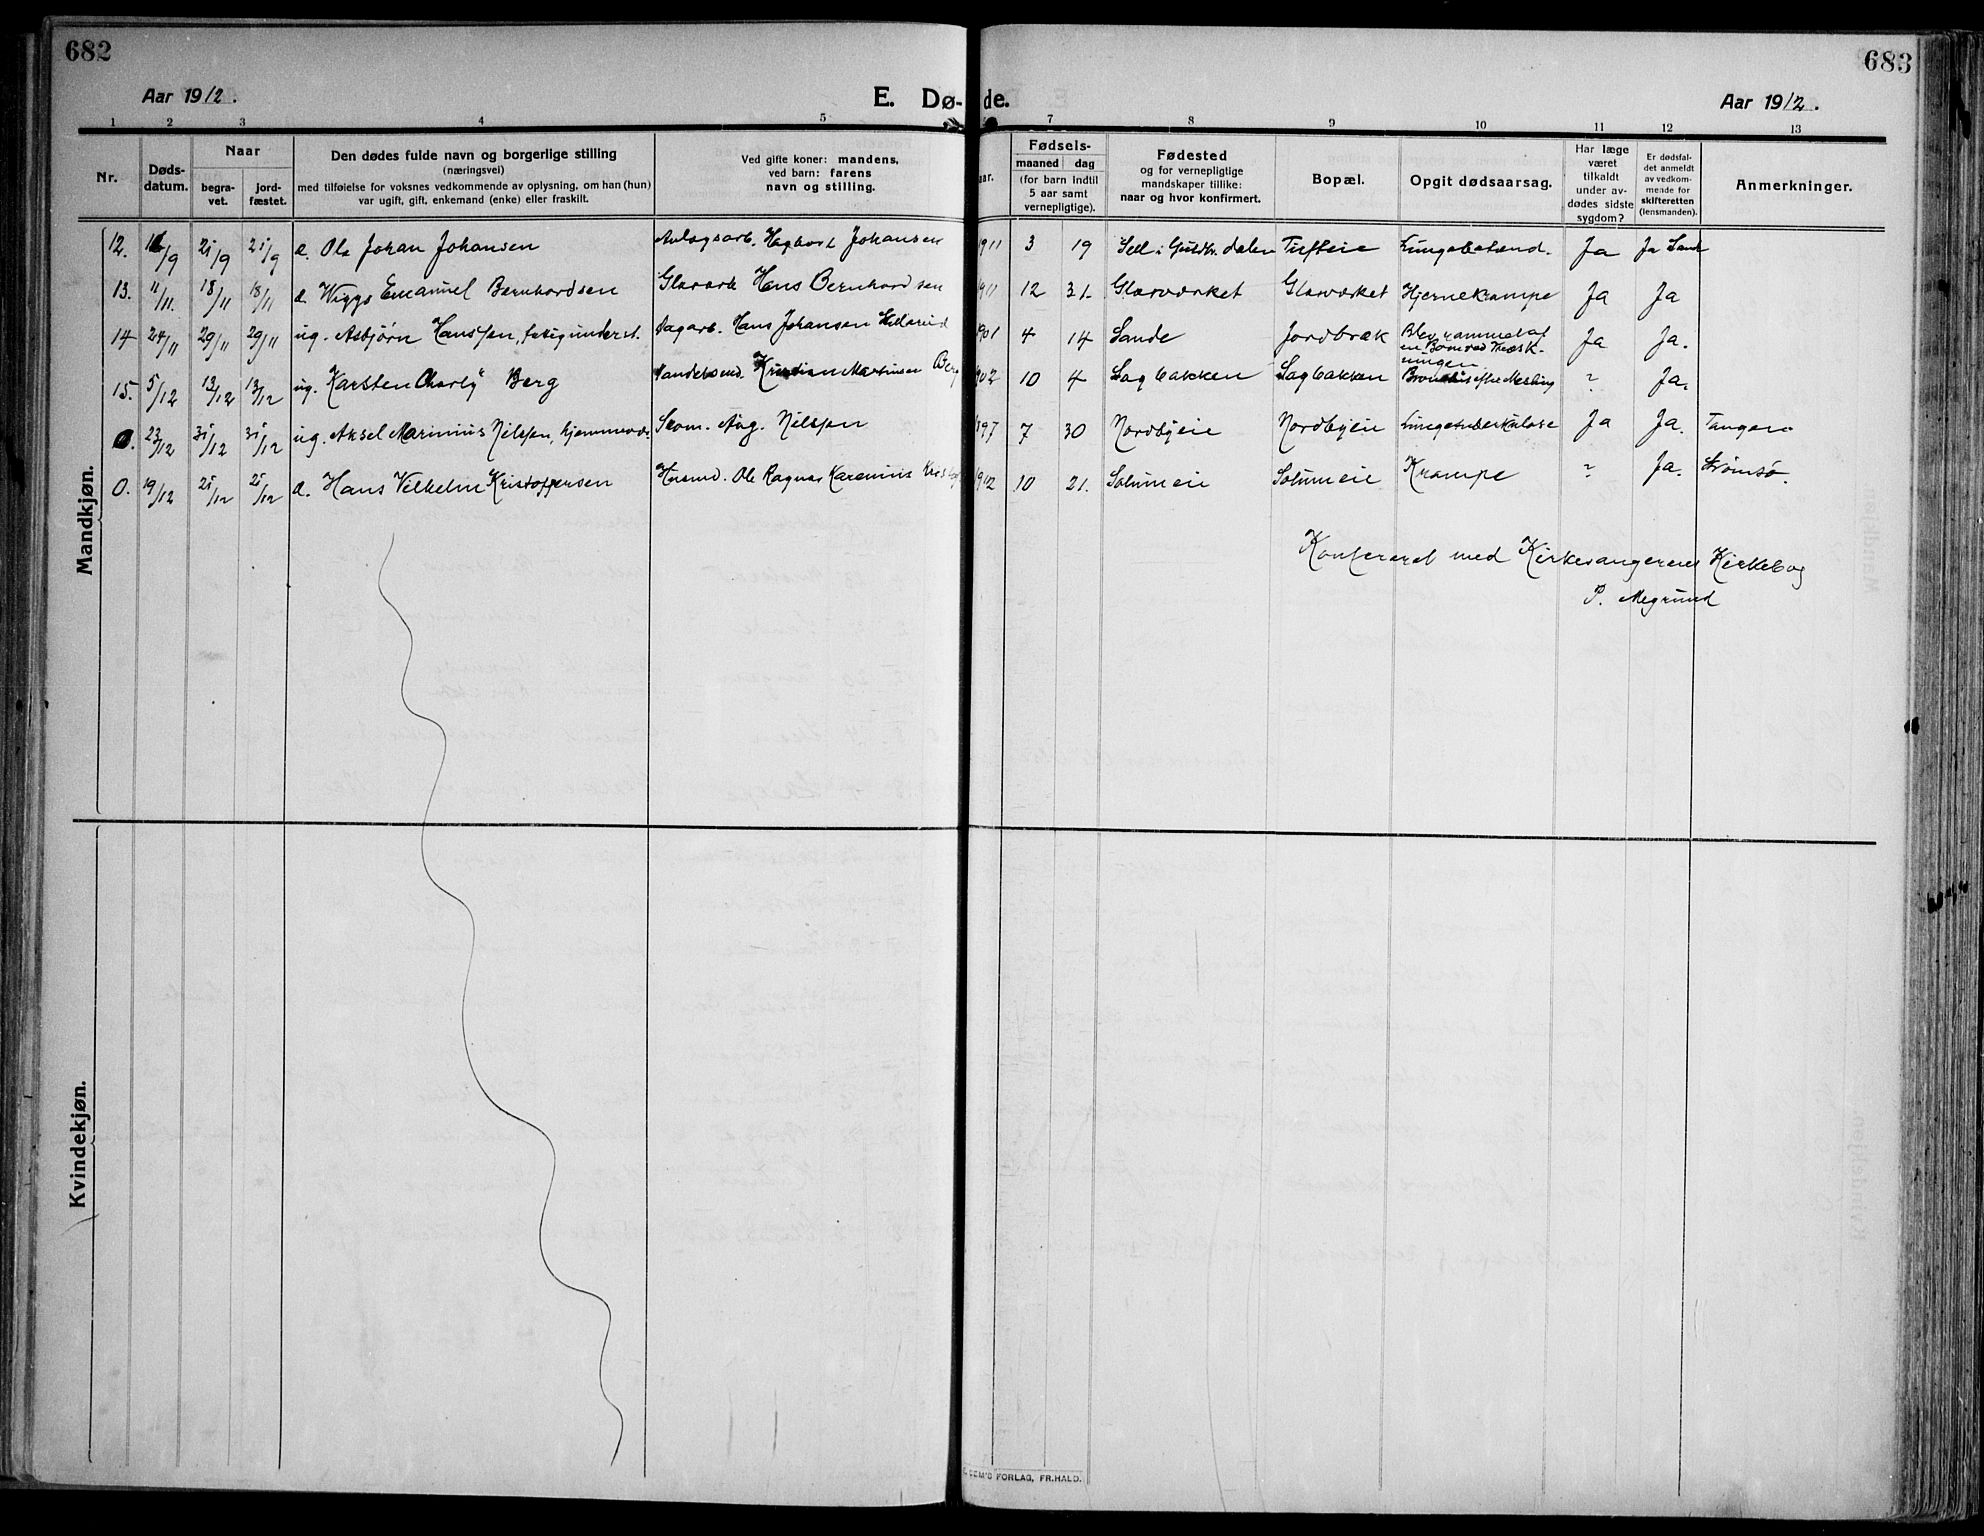 682
683
Aar 1912.
E. Dø-
de.
Aar 1912.
1 2 3 4 5 7 8 9 10 11 12 13
Nr.
Døds-
datum.
Naar
begra-
vet.
jord-
fæstet.
Den dødes fulde navn og borgerlige stilling
(næringsvei)
med tilføielse for voksnes vedkommende av oplysning, om han (hun)
var ugift, gift, enkemand (enke) eller fraskilt.
Ved gifte koner: mandens,
ved barn: farens
navn og stilling.
Fødsels-
maaned dag
(for barn indtil
5 aar samt
vernepligtige).
Fødested
og for vernepligtige
mandskaper tillike:
naar og hvor konfirmert.
Bopæl.
Opgit dødsaarsag.
Har læge
været
tilkaldt
under av-
dødes sidste
sygdom?
Er dødsfal-
det anmeldt
av vedkom-
mende for
skifteretten
(lensmanden).
Anmerkninger.
Mandkjøn.
12. 21/9 21/9 d. Ole Johan Johansen Anlagsarb. Hagbart Johansen 1911 3 19 Sell i Guldbr. dalen Tufteie Lungebetænd. Ja Ja Sande
13. 11/11. 18/11 18/11 d. Wiggo Emanuel Bernhardsen Glasarb Hans Bernhardsen 1911 12 31. Glasværket Glasværket Hjernekrampe Ja Ja
14 24/11 29/11 29/11 ug. Asbjørn Hanssen, fattigunderst. Dagarb. Hans Johansen 1901 4 14 Sande Jordbræk Blev rammet af Ja Ja.
en Bom ved Træsk-
ningen
15. 5/12 13/12 13/12 ug. Karsten Charly Berg Handelsmd. Kristian Martinsen Berg 1902 10 4 Sagbakken Sagbakken Bronchit efter Mesling ? Ja.
0. 23/12 31/12 31/12 ug. Aksel Marinius Nilssen, hjemmevær. Skom. Aug. Nilssen 1897 7 30 Nordbyeie Nordbyeie Lungetuberkulose Ja Ja. Tangen
0. 19/12 21/12 21/12 d. Hans Vilhelm Kristoffersen Husmd. Ole Ragnar Karenius 1912 10 21. Solum eie Solum eie Krampe ? Ja. Strømsø.
Konfereret med Kirkesangerens Kirkebog
P. Megrund
Kvindekjøn.
FORLAG, FR.HALD.